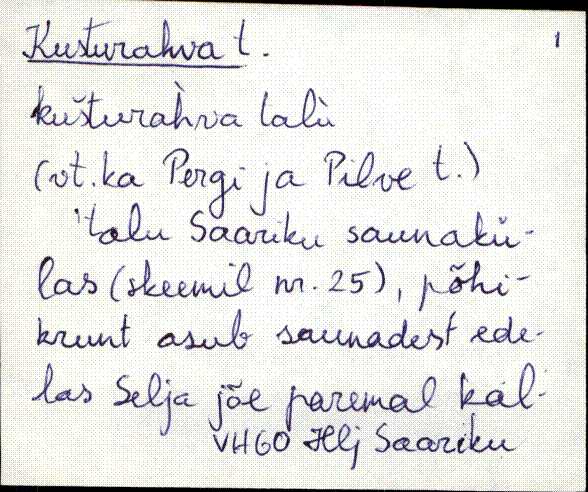 Kusturahva t. 1
kušturàhva talù
(vt. ka Pergi ja Pilve t.)
'talu Saariku saunakü-
las (skeemil nr. 25), põhi-
krunt asub saunadest ede-
las Selja jõe paremal kal-
VHGO Hlj Saariku